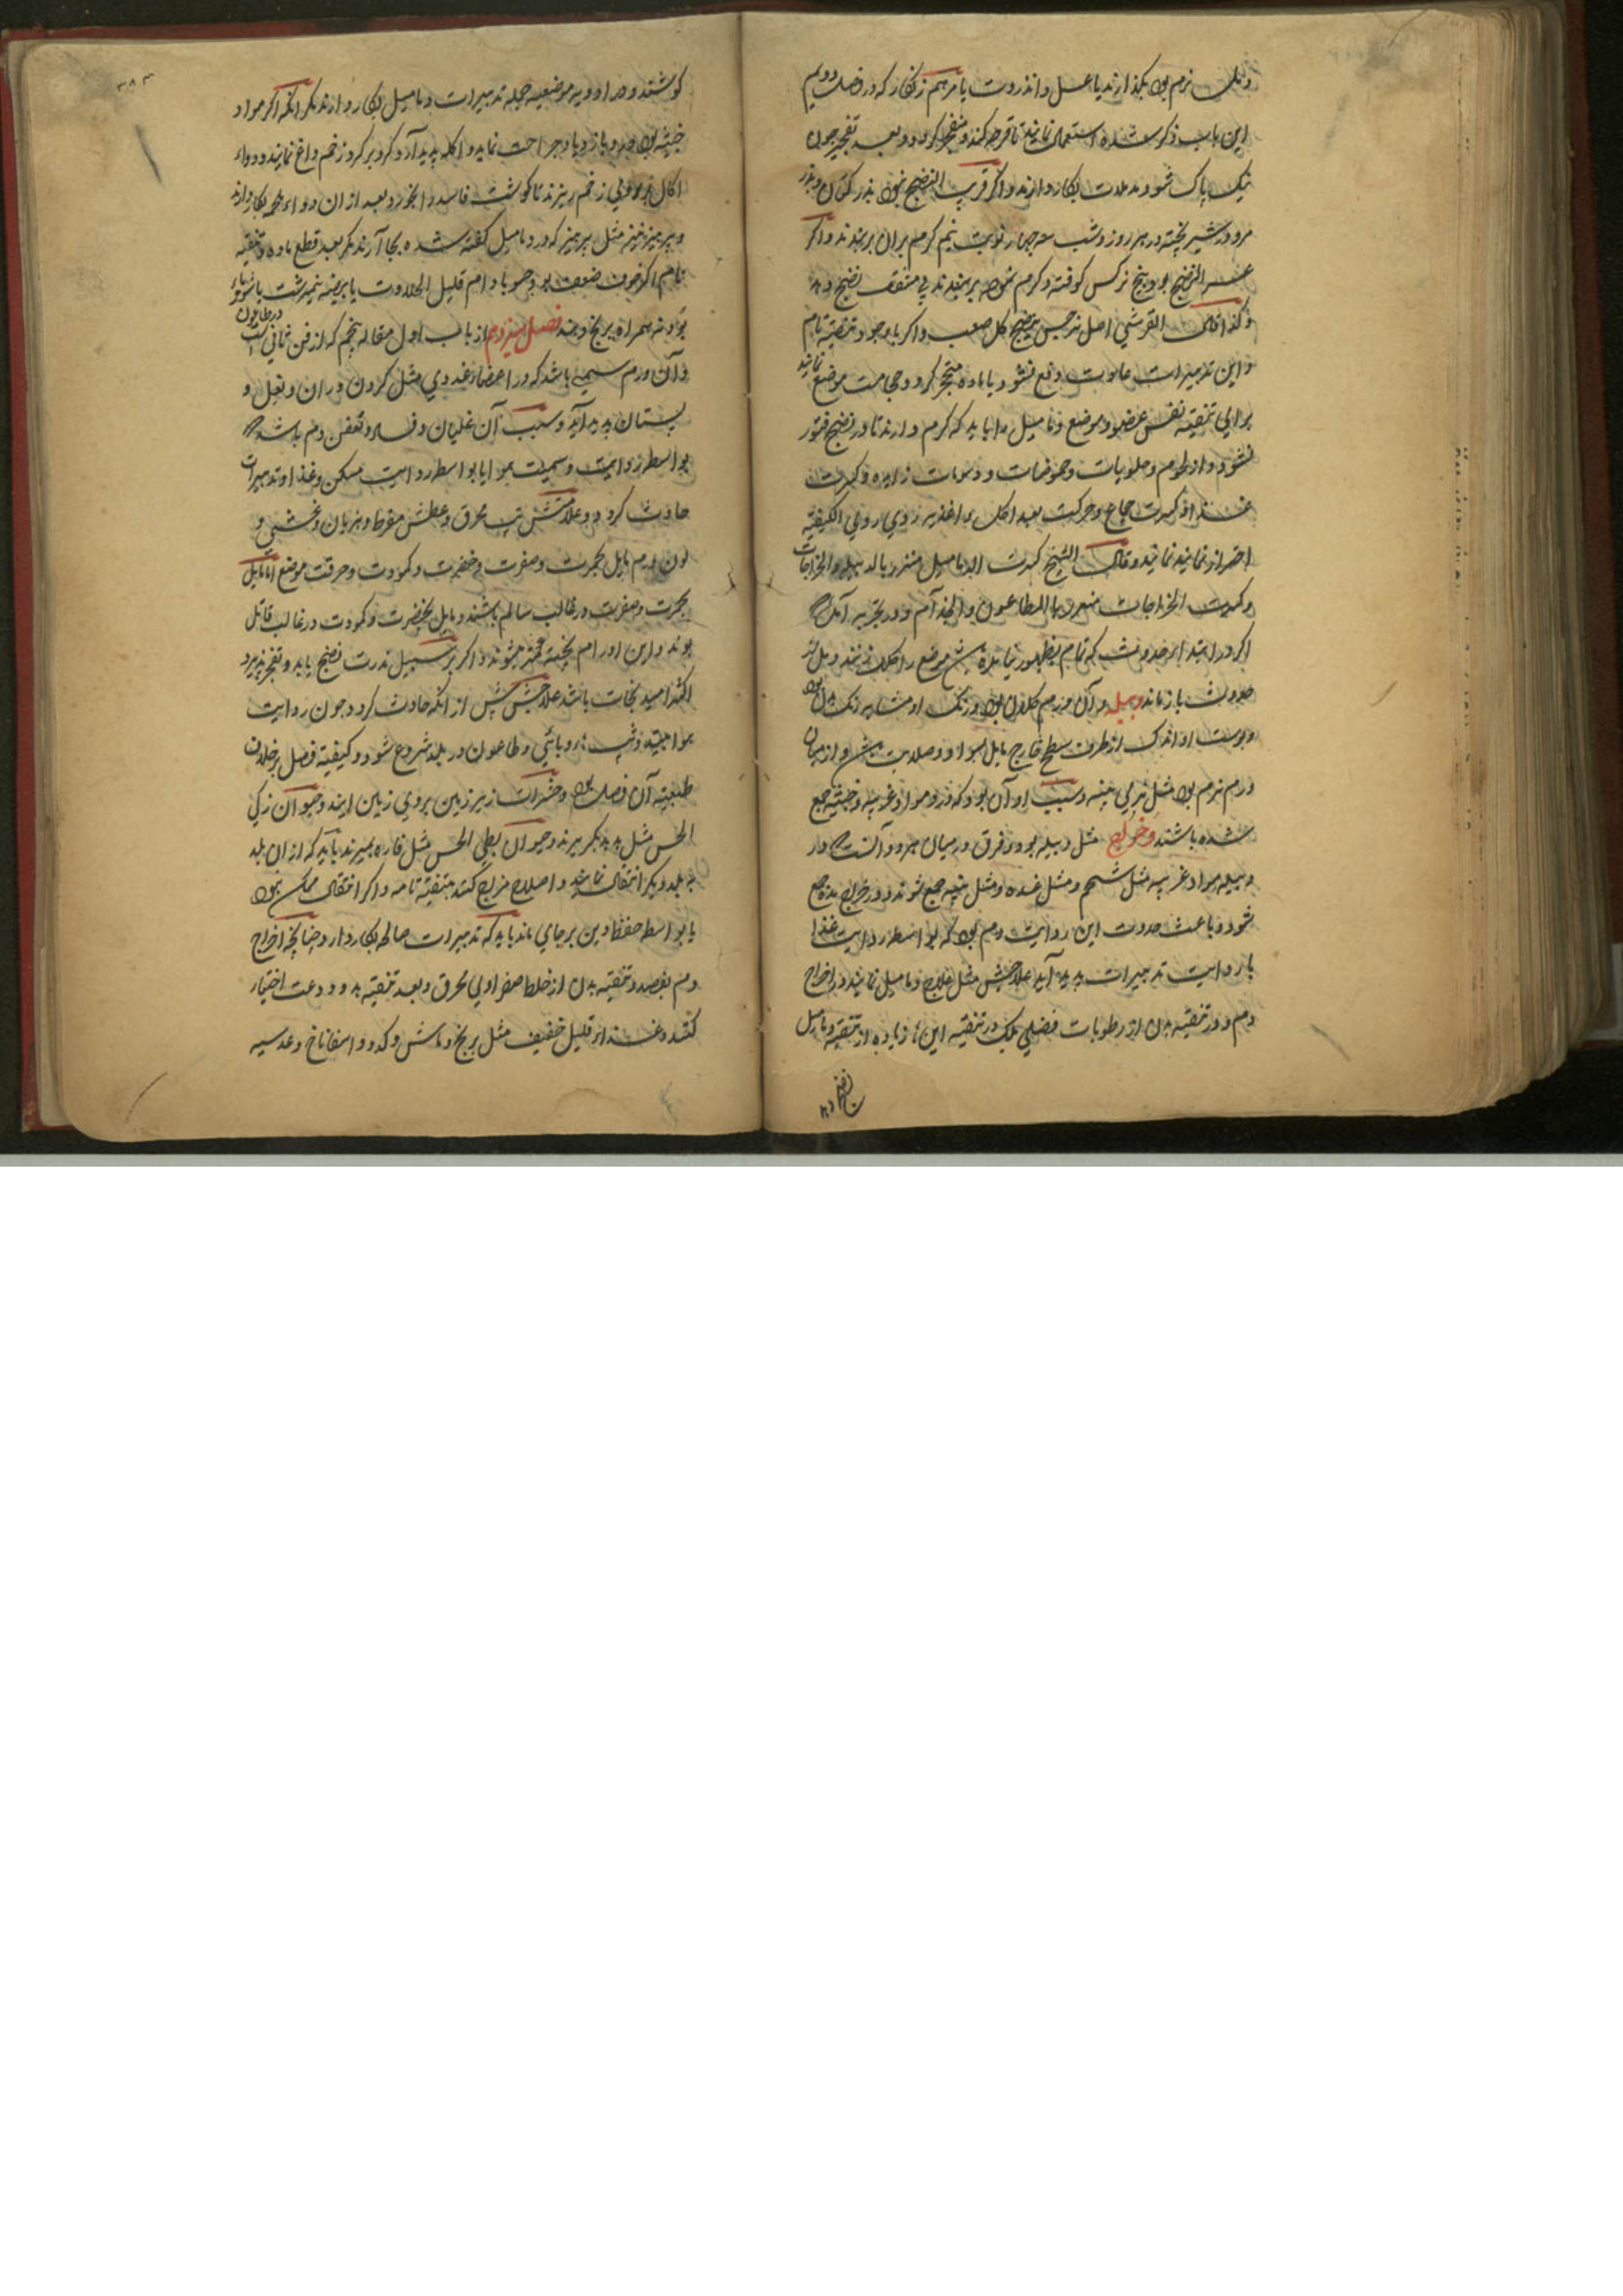 و بلک نرم بود بکذارند یا عسل و انذروت یا مرهم زنکار که در فصل دویم
این باب ذکر شده استعمال نمایند تا قرحه کند و منفجر کردد و بعد تفجیر چون
نیک پاک شود مدملات بکار دارند و اکر قریب النضج نبود بذر کتان و بذر
مرو در شیر پخته در هر روز و شب سه چهار نوبت نیم کرم بران بربندند و اکر
عسر النضج بود بیخ نرکس کوفته و کرم نموده بربندند
و کذا قال القرشی اصل نرجس ینضج کل صعب و اکر با وجود تنقیه تام
و این تدبیرات عادت دفع نشود یا ماده متحجر کردد حجامت موضع نمایند
برای تنقیه نفس عضو و موضع دمامیل را باید که کرم دارند تا در نضج فتور
نشود و از لحوم و حلویات و حموضات و دسومات زایده و کثرت
غذا و کثرت جماع و حرکت بعد اکل و اغذیه ردی ردی الکیفیه
احتراز نمایند و قال الشیخ کثرت الدمامیل منذر بالدبیله و الخراجات
و کثرت الخراجات منذر بالطاعون و الجذام و در تجربه آمده
اکر در ابتداء حدوث که تمام بظهور نیامده
حدوث باز ماند دبیله و آن ورم کلان بود و رنک او مشابه رنک بدن بود
و پوست او اندک از طرف سطح خارج مایل بسواد و صلابت
ورم نرم بود مثل نرمی پنبه و سبب او آن بود که درو مواد غریبه و خبیثه جمع
شده باشند و خراج مثل دبیله بود و فرق در میان هر دو آنست که در
دبیله مواد غریبه مثل شحم و مثل غدده و مثل پنبه جمع شوند و در خراج مده جمع
شود و باعث حدوث این رداءت دم بود که بواسطه رداءت غذا
یا رداءت تدبیرات پدید آید علاجش مثل علاج دمامیل نمایند در اخراج
دم و در تنقیه بدن از رطوبات فضلی بلک در تنقیه این‌ها زیاده از تنقیه دمامیل
کوشند و در ادویه موضعیه جمله تدبیرات دمامیل بکار دارند مکر آنکه اکر مواد
خبیثه بود
اکال بر روی زخم ریزند تا کوشت فاسد را بخورد بعد ازان دواء ملحمه بکار دارند
و پرهیز نیز مثل پرهیز که در دمامیل کفته شده بجا آرند مکر بعد قطع ماده و تنقیه
تام اکر خوف ضعف بود حسو بادام قلیل الحلاوت یا بیضه نیمبرشت یا شوربا
بزاد نه همراه برنج دهند فصل سیزدهم از باب اول مقاله پنجم که از فن ثانی است در طاعون
و آن ورم سمی باشد که در اعضاء غددی مثل کردن و ران و بغل و
پستان پدید آید و سبب آن غلیان و فساد و تعفن دم باشد که
بواسطه رداءت و سمیت هوا یا بواسطه رداءت مسکن و غذا و تدبیرات
حادث کردد و علامتش تپ محرق و عطش مفرط و هذیان و غشی و
لون ورم مایل بحمرت و صفرت و خضرت و کمودت و حرقت موضع اما مایل
بحمرت و صفرت در غالب سالم باشند و مایل بخضرت و کمودت در غالب قاتل
بوند و این اورام پخته کمتر میشوند و اکر بر سبیل ندرت نضج یابد و تفجر پذیرد
اکثر امید نجات باشد علاجش پیش از آنکه حادث کردد چون رداءت
هوا بیند و تپ‌ها وبائی و طاعون در بلد شروع شود و کیفیة فصل بر خلاف
طبیعة آن فصل بود و حشرات زیر زمین بروی زمین آیند و حیوان زکی
الحس مثل هدهد بکریزند و حیوان بطی الحس مثل فاره بمیرند باید که ازان بلد
به بلد دیکر انتقال نمایند و اصلاح مزاج کنند بتنقیه تامه و اکر انتقال ممکن نبود
یا بواسطه حفظ دین برجای ماند باید که تدبیرات صالحه بکار دارد چنانچه اخراج
دم بفصد و تنقیه بدن از خلط صفراوی محرق و بعد تنقیه بدو دعت اختیار
کند و غذاء قلیل خفیف مثل برنج و ماش و کدو و اسفاناخ و عدسیه